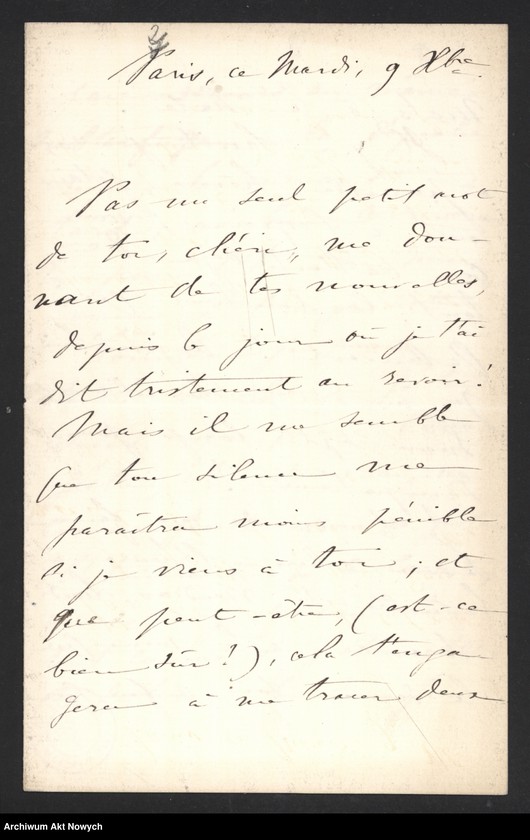 Paris, ce Mardi, 9 Xbre
Pas un seul petit mot
de toi, chérie, me don-
nant de tes nouvelles,
depuis le jour où je t'ai
dit tristement au revoir!
Mais il me semble
que ton silence me
paraîtra moins pénible
si je viens à toi; et
que peut-être, (est-ce
bien sûr!), cela t'enga
gera à me tracer deux
Archiwum Akt Nowych